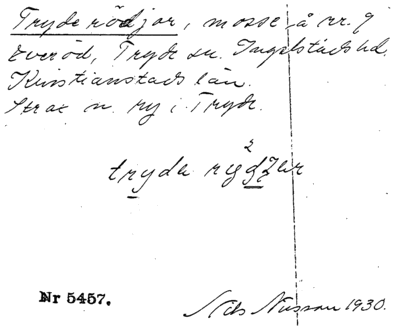 Tryde rödjor, mosse å nr. 9
Everöd, Tryde sn. Ingelstads hd.
Kristianstads län.
Strax n. ry i Tryde.
tryde
Nr 5457.
Nils Nilsson 1930.